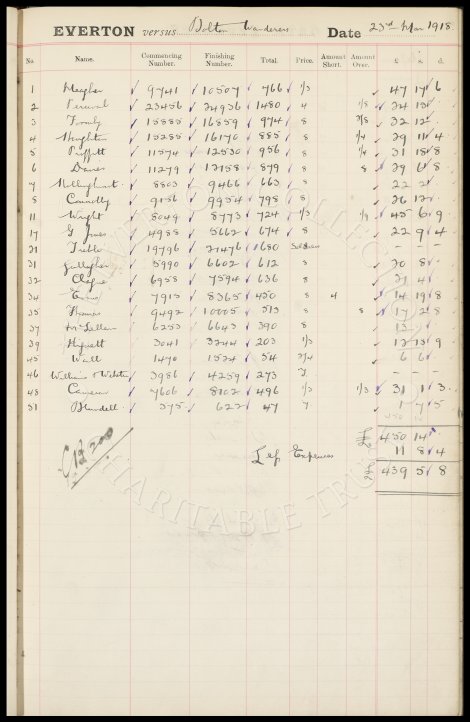 EVERTON versus Bolton Wanderers Date 23rd Mar 1918
No. Name. Commencing Number. Finishing Number. Total. Price. Amount Short. Amount Over. £ s. d.
1 Meagher 9741 10507 766 1/3 47 17 6
2 Percival 23456 24936 1480 4 1/8 24 15
3 Formby 15885 16859 974 8 7/8 32 12
4 Houghton 15285 16170 885 8 1/4 29 11 4
5 11574 12530 956 8 1/4 31 18 8
6 Davies 11279 12158 879 8 8 29 6 8
7 8803 9466 663 8 22 2
8 Connolly 9156 9954 798 8 26 12
11 Wright 8049 8773 724 1/3 1/9 45 6 9
17 G Jones 4988 5662 674 8 22 9 4
21 Treble 19796 21476 1680 - - -
31 Gallagher 5990 6602 612 8 20 8
32 Clague 6958 7594 636 8 21 4
34 7915 8365 450 8 4 14 19 8
35 Thomas 9492 10005 513 8 8 17 2 8
37 McLellan 6253 6643 390 8 13
39 Hignett 3041 3244 203 1/3 12 13 9
45 Wall 1470 1524 54 2/4 6 6
46 Williams & Webster 3986 4259 273 - - -
48 Cameron 7606 8102 496 1/3 1/3 31 1 3
51 Blundell 575 622 47 7 1 7 5
£ 450 14
Less Expenses 11 8 4
£ 439 5 8
EVERTON COLLECTION
CHARITABLE TRUST